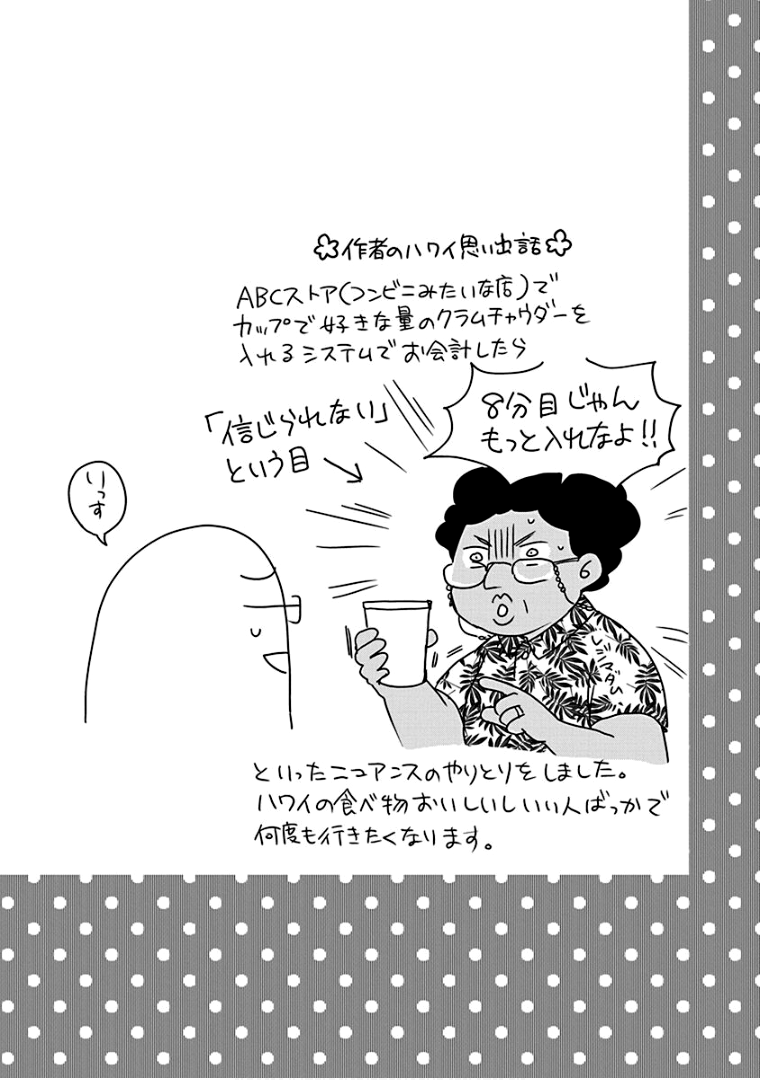 作者のハワイ思い出話
ABCストア(コンビニみたいな店)で
カップで好きな量のクラムチャウダーを
入れるシステムでお会計したら
8分目じゃん
もっと入れなよ!!
「信じられない」
という目
いっす
といったニュアンスのやりとりをしました。
ハワイの食べ物おいしいしいい人ばっかで
何度も行きたくなります。